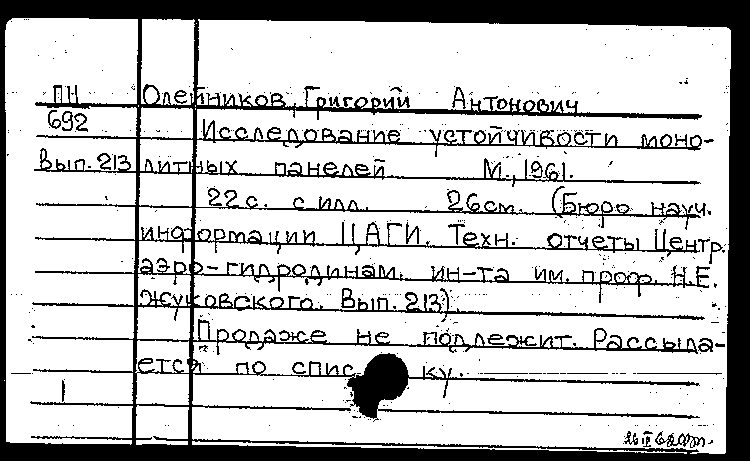 ПН Олейников, Григорий Антонович
692 Исследование устойчивости моно-
Вып. 213 литных панелей М., 1961.
22 с. с илл. 26 см. (Бюро науч.
информации ЦАГИ. Техн. отчеты Центр.
аэро-гидродинам. ин-та им. проф. Н.Е.
Жуковского. Вып. 213).
Продаже не подлежит. Рассыла-
ется по списку.
1